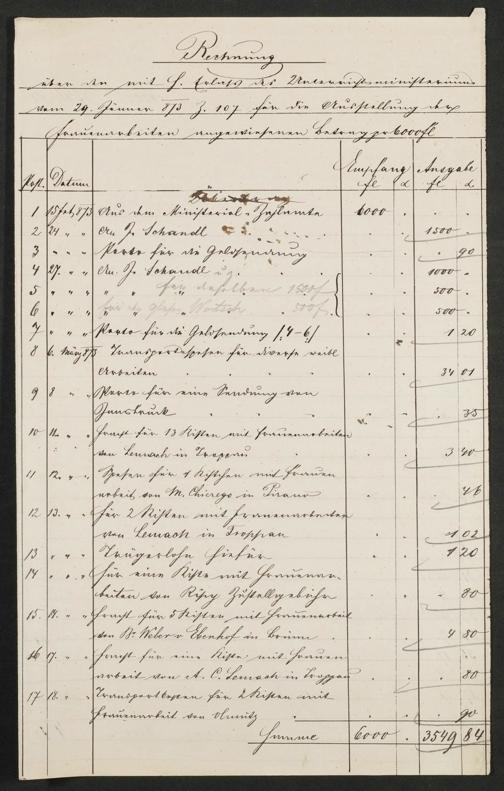 Rechnung
über den mit h. Erlaß des Unterrichtsministeriums
vom 29. Jänner 873 Z. 107 für die Ausstellung der
Frauenarbeiten angewiesenen Betrag pr 6000 fl
Empfang Ausgabe
Post. Datum fl x fl x
1 15 Feb. 873 Aus dem Ministerial-Zahlamte 6000 . . .
2 24 " " An J. Schandl 1500 .
3 " " " Porto für die Geldsendung . 90
4 27. " " An J. Schandl 1000 .
5 " " " für denselben 1500 f 500 .
6 " " " 500 f 500 .
7 " " " Porto für die Geldsendung /4-6/ 1 20
8 6. März 873 Transportspesen für diverse weibl
Arbeiten 34 01
9 8 " " Porto für eine Sendung von
Innsbruck . 35
10 11. " " Fracht für 13 Kisten mit Frauenarbeiten
von Lemach in Troppau 3 40
11 12. " " Spesen für 1 Kistchen mit Frauen
arbeit von M. in Pirano . 46
12 13. " " Für 2 Kisten mit Frauenarbeiten
von Lemach in Troppau 1 02
13 " " " Trägerlohn hiefür 1 20
14 " " " Für eine Kiste mit Frauenar-
beiten von Zustellgebühr . 80
15. 14. " " Fracht für 5 Kisten mit Frauenarbeit
von Bn Weber Ebenhof in Brünn 4 80
16 17. " " Fracht für eine Kiste mit Frauen
arbeit von A. C. Lemach in Troppau . 80
17 18. " " Transportkosten für 2 Kisten mit
Frauenarbeit von Olmütz . 90
Summe 6000 . 3549 84